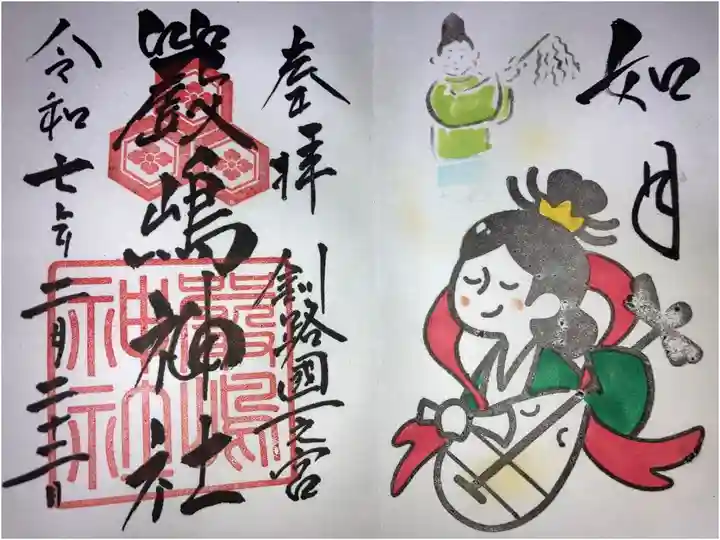 如月
奉拝
釧路國一之宮
嚴嶋神社
令和七年二月二十三日
嚴嶋
神社